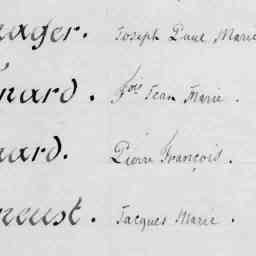 nager. Joseph Paul Marie
énard. fois Jean Marie.
nard. Pierre François.
neust. Jacques Marie.